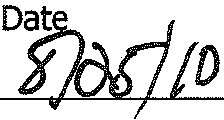 Date
8/25/10